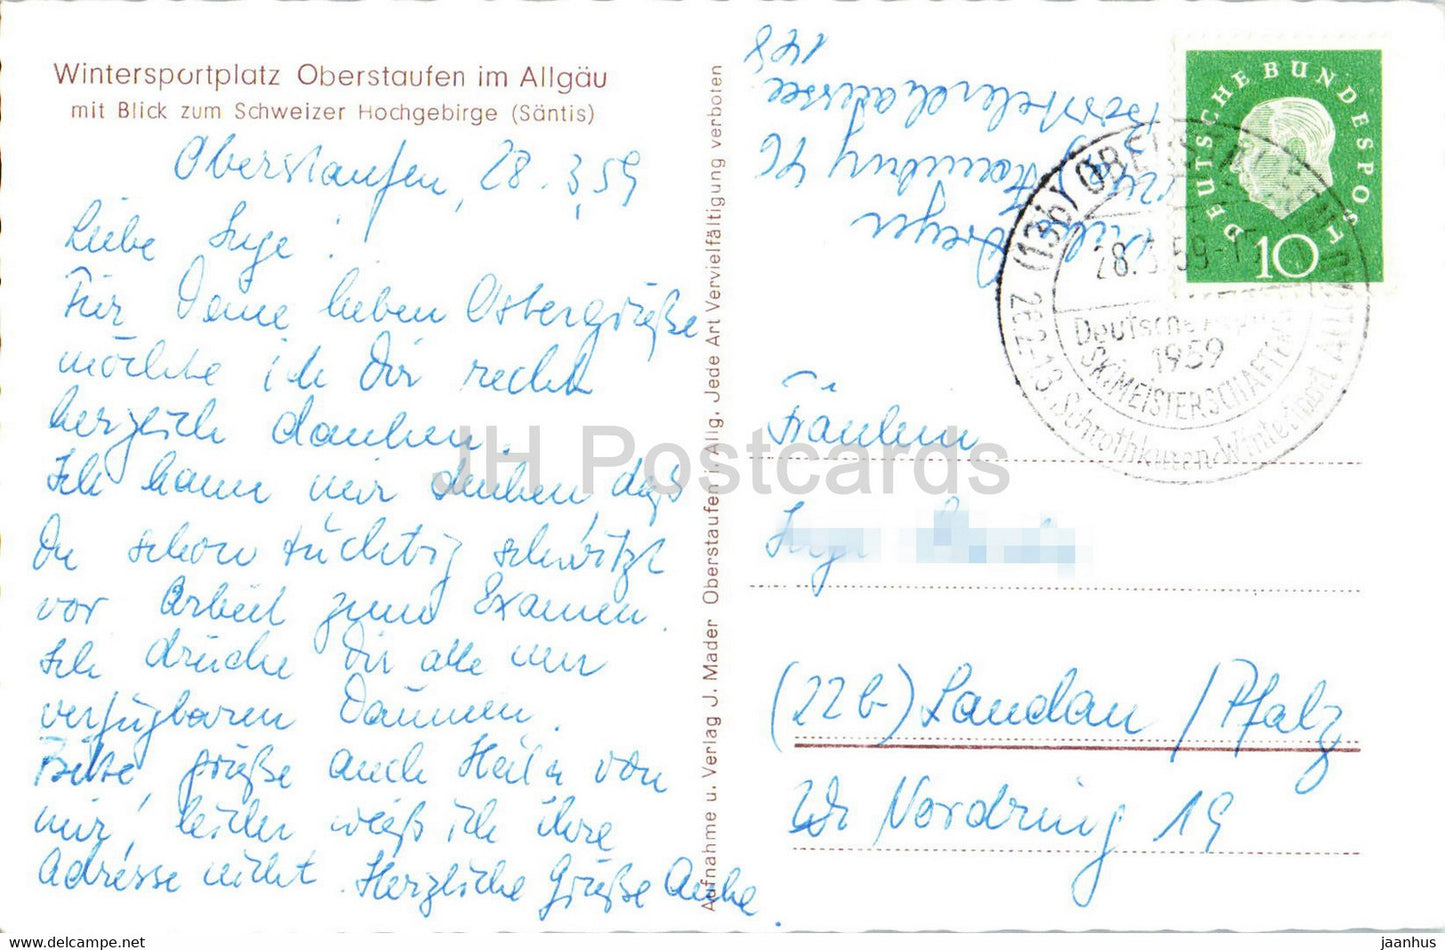 Wintersportplatz Oberstaufen im Allgäu
mit Blick zum Schweizer Hochgebirge (Säntis)
Oberstaufen, 28.3.59
Liebe Inge!
Für Deine lieben Ostergrüße
möchte ich Dir recht
herzlich danken.
Ich kann mir denken, daß
Du schon tüchtig schwitzt
vor Arbeit zum Examen.
Ich drücke Dir alle nur
verfügbaren Daumen.
Bitte, grüße auch von
mir, leider weiß ich ihre
Adresse nicht. Herzliche Grüße Anke.
Aufnahme u. Verlag J. Mader Oberstaufen i. Allg. Jede Art Vervielfältigung verboten
Dreyer
Hamburg
148
DEUTSCHE BUNDESPOST
10
(13b) OBERSTAUFEN
28.3.59-15
Deutsche
SKIMEISTERSCHAFTEN
1959
26.2-1.3. Schrothkuren-Wintersport
Fräulein
Inge
(22b) Landau / Pfalz
Nordring 19
JH Postcards
www.delcampe.net
jaanhus